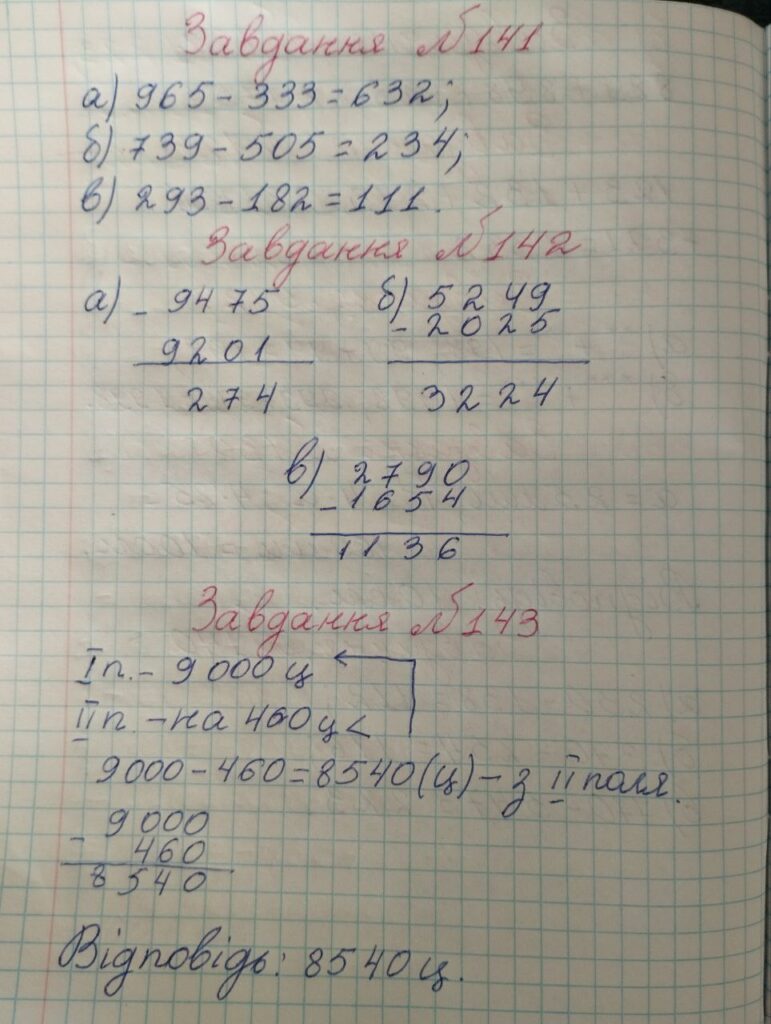 Завдання №141
а) 965 - 333 = 632;
б) 739 - 505 = 234;
в) 293 - 182 = 111.
Завдання №142
а) - 9475 б) 5249
9201 - 2025
274 3224
в) 2790
- 1654
1136
Завдання №143
I п. - 9000 ц
II п. - на 460 ц <
9000 - 460 = 8540 (ц) - з II поля.
9000
- 460
8540
Відповідь: 8540 ц.